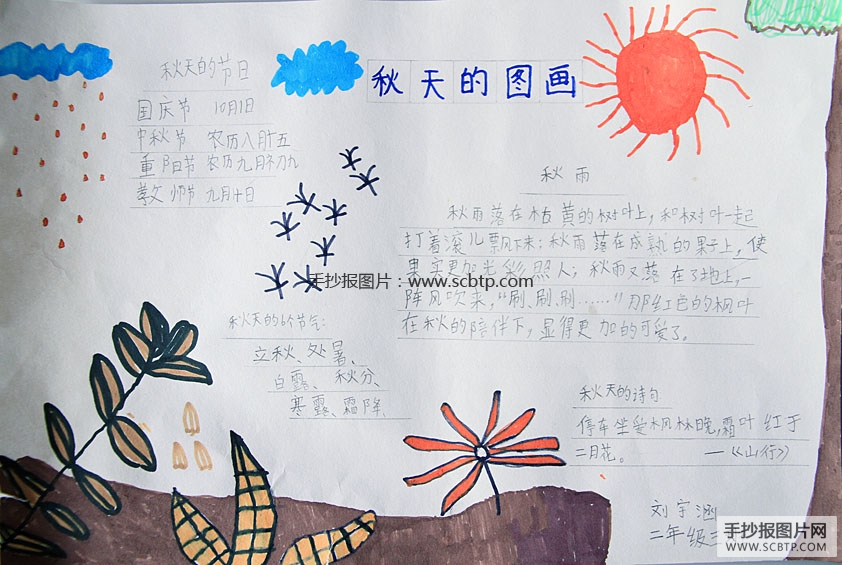 秋天的图画
秋天的节日
国庆节 10月1日
中秋节 农历八月十五
重阳节 农历九月初九
教师节 九月十日
秋雨
秋雨落在枯黄的树叶上,和树叶一起
打着滚儿飘下来;秋雨落在成熟的果子上,使
果实更加光彩照人;秋雨又落在了地上,一
阵风吹来,“刷、刷、刷……”那红色的枫叶
在秋的陪伴下,显得更加的可爱了。
手抄报图片:www.scbtp.com
秋天的6个节气:
立秋、处暑、
白露、秋分、
寒露、霜降、
秋天的诗句
停车坐爱枫林晚,霜叶红于
二月花。 —《山行》
刘宇涵
二年级
手抄报图片网
WWW.SCBTP.COM